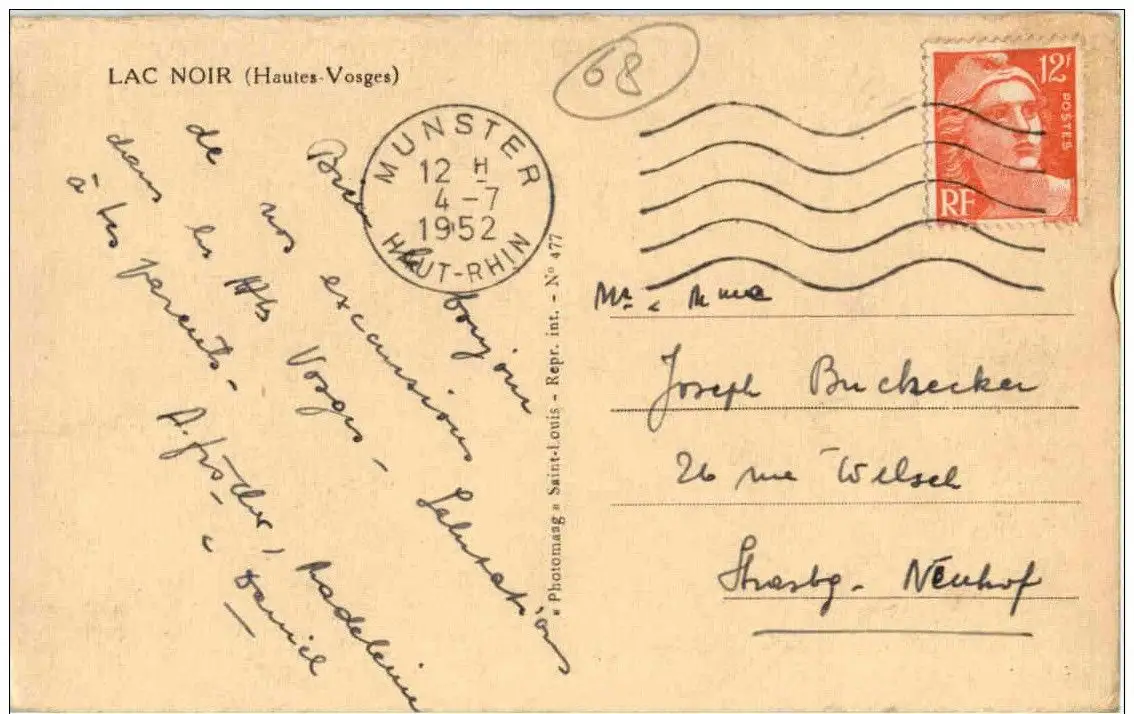 LAC NOIR (Hautes-Vosges)
68
MUNSTER
12 H
4 -7
1952
HAUT-RHIN
12F
POSTES
RF
Bien le bonjour
de nos excursions
dans les Htes Vosges - Salutations
à tes parents -
Madeleine
Daniel
« Photomaag » Saint-Louis - Repr. int. - N° 477
Mr & Mme
Joseph Buckecker
26 rue Welsch
Strasbg - Neuhof